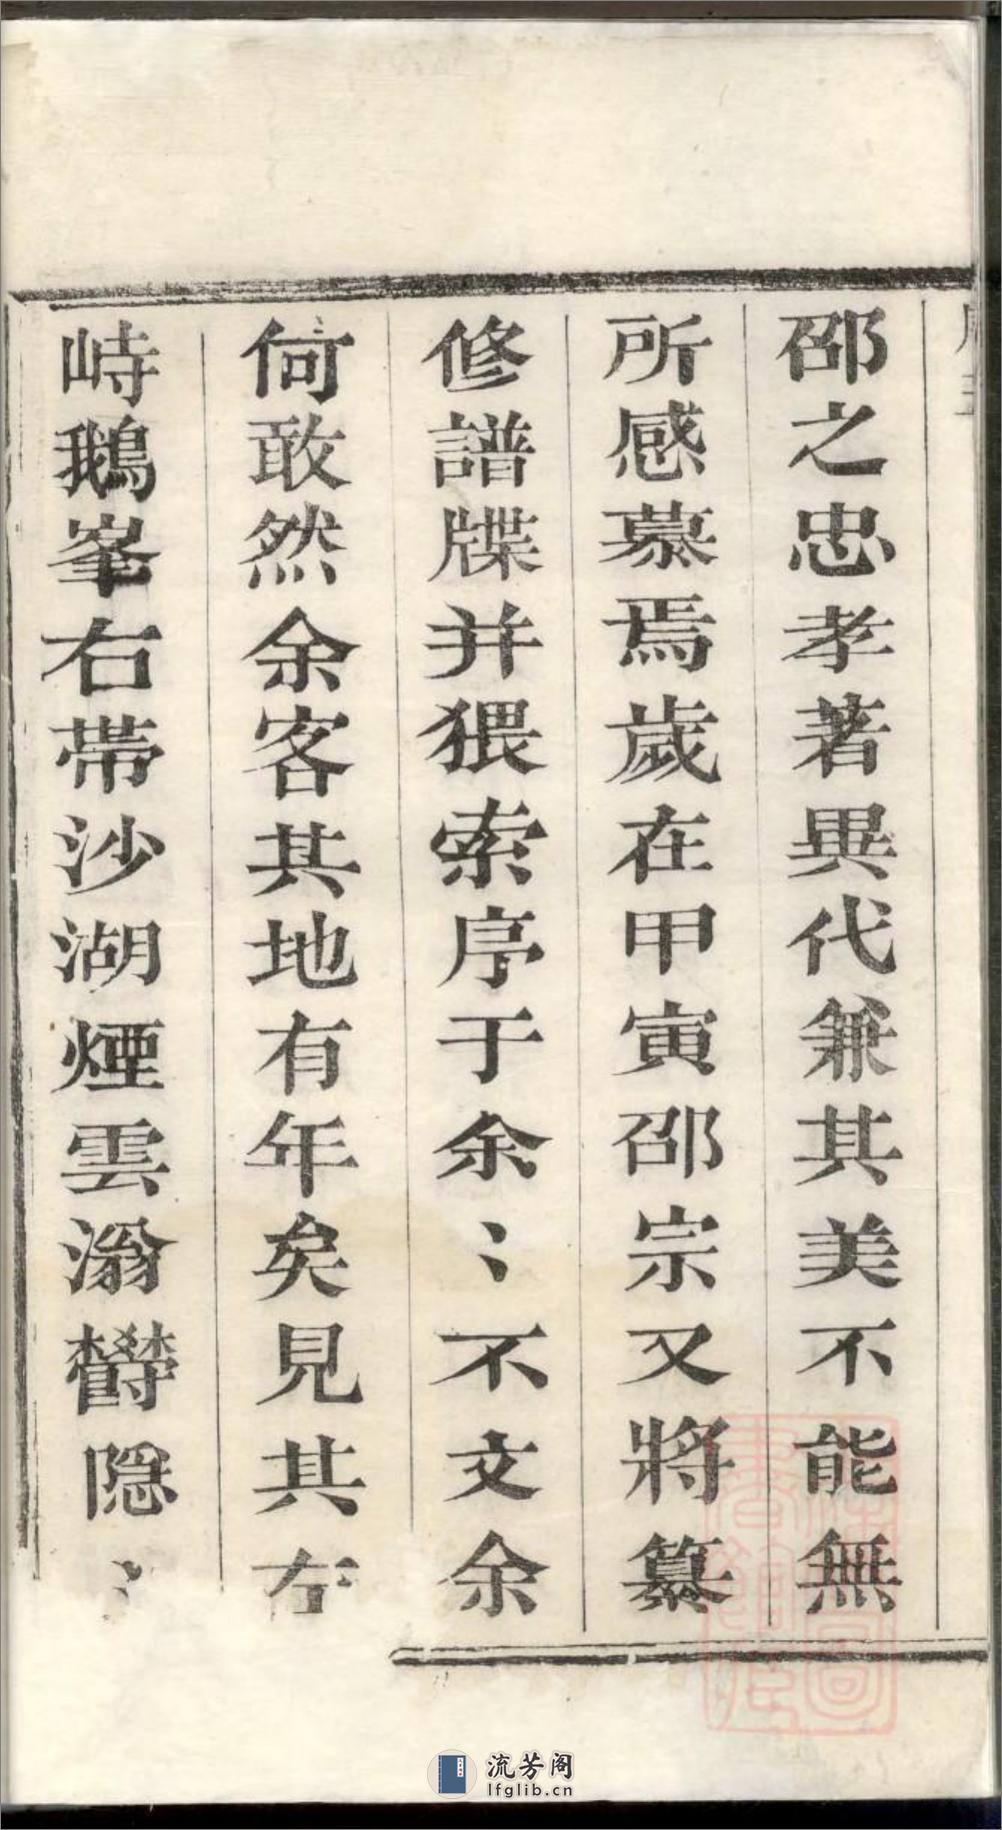 邵之忠孝著異代兼其美不能無
所感慕焉歲在甲寅邵宗又將纂
修譜牒并猥索序于余〻不文余
倘敢然余客其地有年矣見其左
峙鵝峯右帶沙湖煙雲滃欝隠〻
流芳阁
lfglib.cn